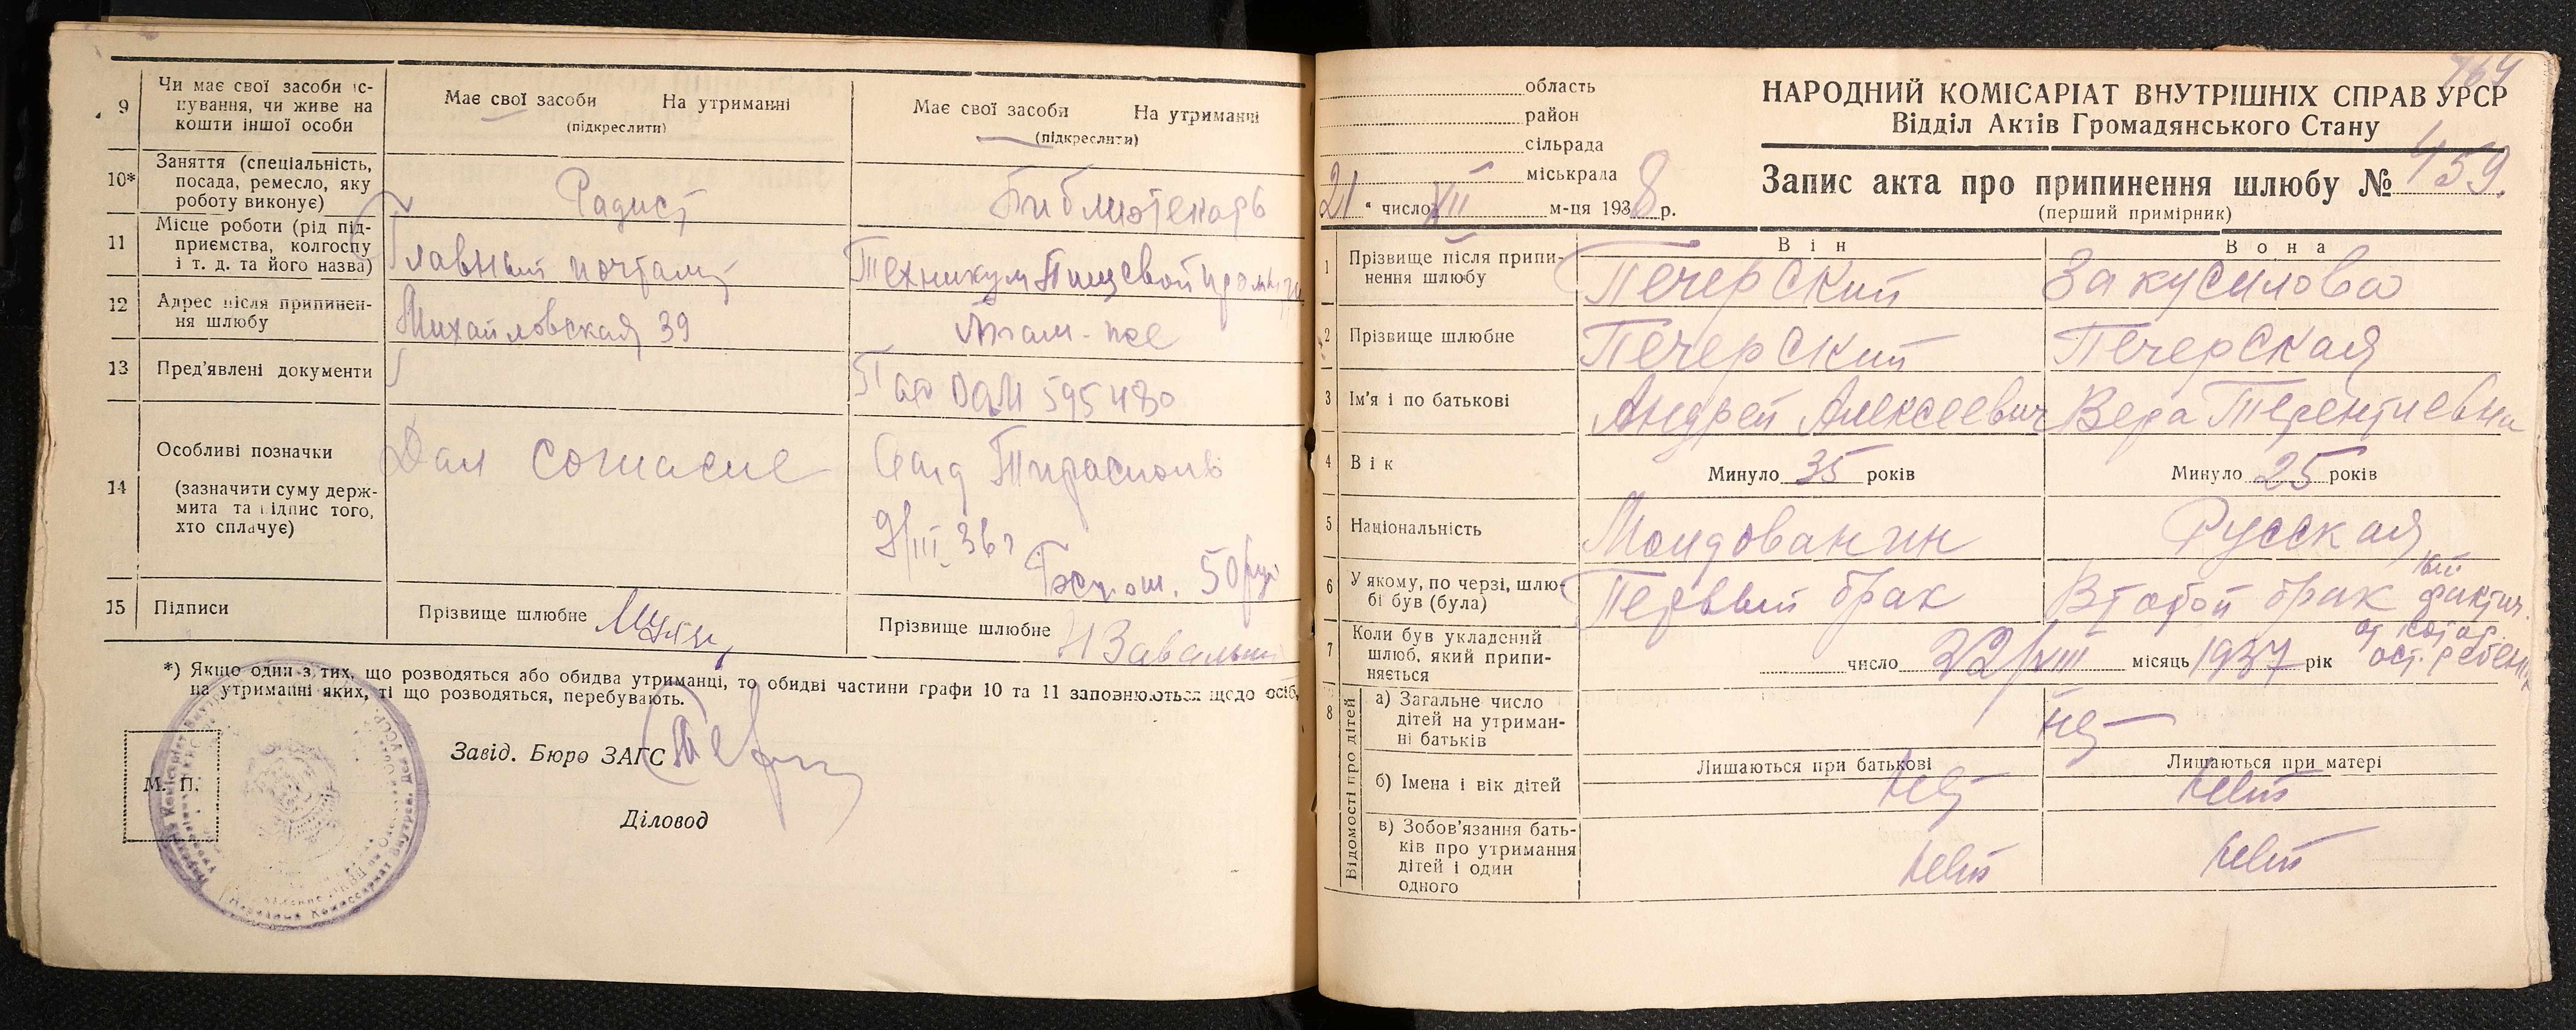 9
Чи має свої засоби іс-
нування, чи живе на
кошти іншої особи
Має свої засоби На утриманні
(підкреслити)
Має свої засоби На утриманні
(підкреслити)
10*
Заняття (спеціальність,
посада, ремесло, яку
роботу виконує)
Радист
Библиотекарь
11
Місце роботи (рід під-
приємства, колгоспу
і т. д. та його назва)
Главный почтамт
Техникум Пищевой
12
Адрес після припинен-
ня шлюбу
Михайловская 39
Там-же
13
Пред'явлені документи
595480
14
Особливі позначки
(зазначити суму держ-
мита та підпис того,
хто сплачує)
Дал согласие
Тирасполь
III 36г
50 руб
15
Підписи
Прізвище шлюбне
Прізвище шлюбне
*) Якщо один з тих, що розводяться або обидва утриманці, то обидві частини графи 10 та 11 заповнюються щодо осіб,
на утриманні яких, ті що розводяться, перебувають.
М. П.
Завід. Бюро ЗАГС
Діловод
область
район
сільрада
міськрада
21 " число VII м-ця 1938 р.
НАРОДНИЙ КОМІСАРІАТ ВНУТРІШНІХ СПРАВ УРСР
Відділ Актів Громадянського Стану
Запис акта про припинення шлюбу № 459.
(перший примірник)
Він
Вона
1
Прізвище після припи-
нення шлюбу
Печерский
Закусилова
2
Прізвище шлюбне
Печерский
Печерская
3
Ім'я і по батькові
Андрей Алексеевич
Вера Терентиевна
4
Вік
Минуло 35 років
Минуло 25 років
5
Національність
Молдованин
Русская
6
У якому, по черзі, шлю-
бі був (була)
Первый брак
Второй брак
фактич.
от котор.
ост. ребенок
7
Коли був укладений
шлюб, який припи-
няється
число 22/VIII місяць 1937 рік
8
Відомості про дітей
а) Загальне число
дітей на утриман-
ні батьків
нет
б) Імена і вік дітей
Лишаються при батькові
нет
Лишаються при матері
нет
в) Зобов'язання бать-
ків про утримання
дітей і один
одного
нет
нет